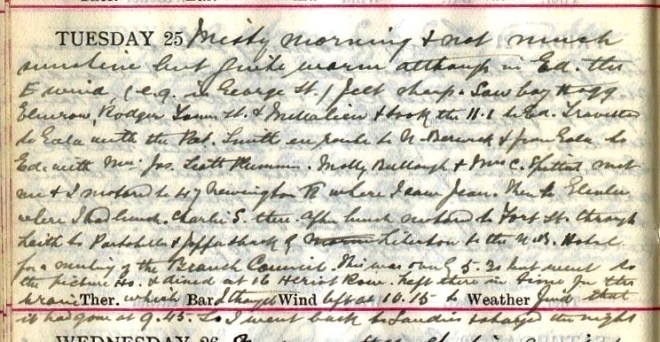 TUESDAY 25 Misty morning & not much
sunshine but quite warm although in Ed. the
E wind, (e.g. in George St.) felt sharp. Saw boy Hogg
Rodger & took the 11.1 to Ed. Travelled
to with the Smith en route to N. Berwick & from to
Ed. with Mrs. Jos. Scott Plummer. Molly, & Mrs C. met
me & I motored to 47 Newington Rd where I saw Jean. Then to
where I had lunch. Charlie S. there. After lunch motored to Fort St. through
Leith to Portobello & back by Liberton to the N.B. Hotel
for a meeting of the Branch Council. This was over by 5.30 & went to
the picture Ho. & dined at 16 Heriot Row. Left there in time for the
train Ther. which Bar. I thought Wind left at 10.15 to Weather find that
it had gone at 9.45. So I went back to & stayed the night
WEDNESDAY 26